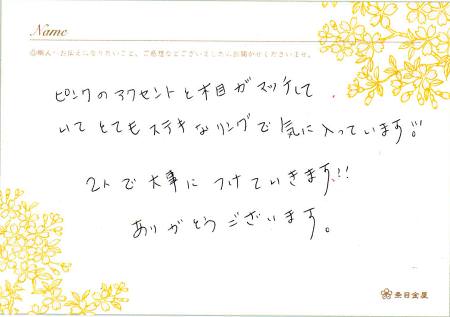 Name
お伝えになりたいこと、ご感想などございましたらお聞かせくださいませ。
ピンクのアクセントと木目がマッチして
いてとてもステキなリングで気に入っています!!
2人で大事につけていきます!!
ありがとうございます。
杢目金屋